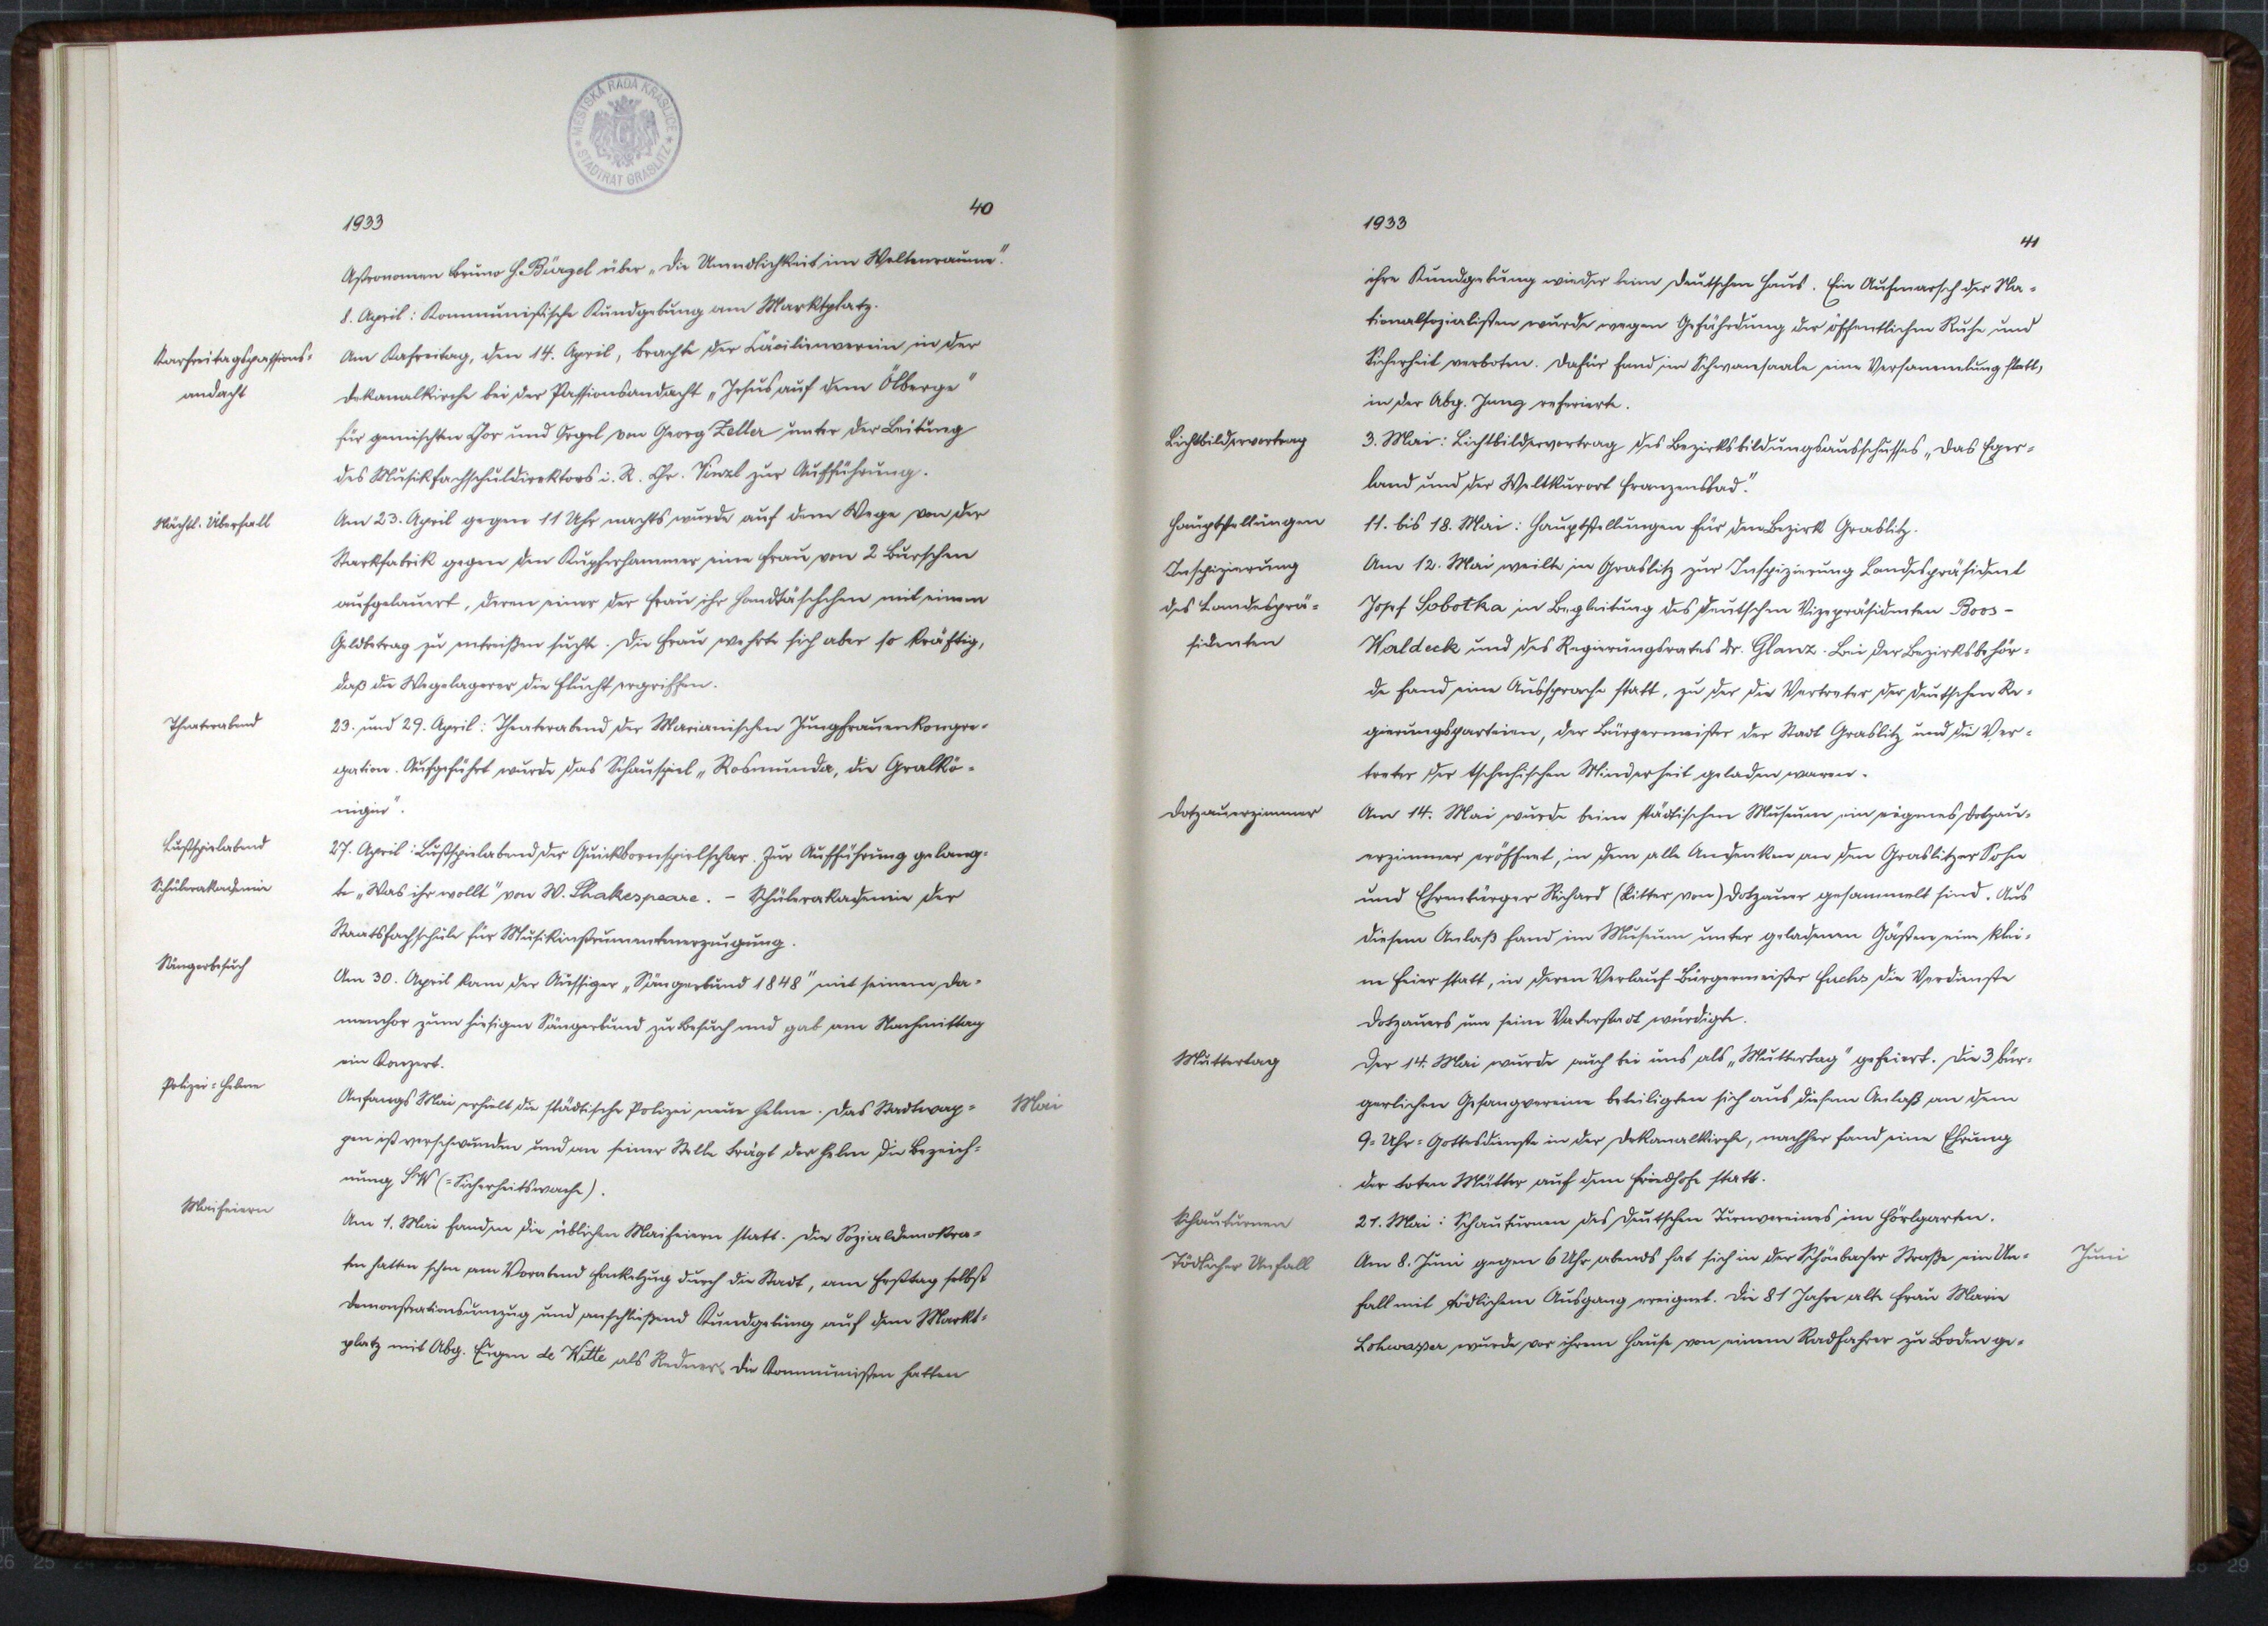 MĚSTSKÁ RADA KRASLICE
STADTRAT GRASLITZ
1933
40
Astronomen Bruno H. Bürgel über „Die Unendlichkeit im Weltenraume".
8. April: Kommunistische Kundgebung am Marktplatz.
Karfreitagspassions-
andacht
Am Kafreitag, den 14. April, brachte der Cäcilienverein in der
Dekanalkirche bei der Passionsandacht „Jesus auf dem Ölberge"
für gemischten Chor und Orgel von Georg Zeller unter der Leitung
des Musikfachschuldirektors i. R. Chr. Vinzl zur Aufführung.
Nächtl. Überfall
Am 23. April gegen 11 Uhr nachts wurde auf dem Wege von der
Starkfabrik gegen den Kupferhammer eine Frau von 2 Burschen
aufgelauert, deren einer der Frau ihr Handtäschchen mit einem
Geldbetrag zu entreißen suchte. Die Frau wehrte sich aber so kräftig,
daß die Wegelagerer die Flucht ergriffen.
Theaterabend
23. und 29. April: Theaterabend der Marianischen Jungfrauenkongre-
gation. Aufgeführt wurde das Schauspiel „Rosmunda, die Gralkö-
nigin".
Lustspielabend
27. April: Lustspielabend der Quickbornspielschar. Zur Aufführung gelang-
Schülerakademie
te „Was ihr wollt" von W. Shakespeare. – Schülerakademie der
Staatsfachschule für Musikinstrumentenerzeugung.
Sängerbesuch
Am 30. April kam der Aussiger „Sängerbund 1848" mit seinem Da-
menchor zum hiesigen Sängerbund zu Besuch und gab am Nachmittag
ein Konzert.
Polizei-Helme
Anfangs Mai erhielt die städtische Polizei neue Helme. Das Stadtwap-
Mai
pen ist verschwunden und an seiner Stelle trägt der Helm die Bezeich-
nung SW (=Sicherheitswache).
Maifeiern
Am 1. Mai fanden die üblichen Maifeiern statt. Die Sozialdemokra-
ten hatten schon am Vorabend Fackelzug durch die Stadt, am Festtag selbst
Demonstrationsumzug und anschließend Kundgebung auf dem Markt-
platz mit Abg. Eugen de Witte als Redner. Die Kommunisten hatten
1933
41
ihre Kundgebung wieder beim Deutschen Haus. Ein Aufmarsch der Na-
tionalsozialisten wurde wegen Gefährdung der öffentlichen Ruhe und
Sicherheit verboten. Dafür fand im Schwansaale eine Versammlung statt,
in der Abg. Jung referierte.
Lichtbildervortrag
3. Mai: Lichtbildervortrag des Bezirksbildungsausschusses „Das Eger-
land und der Weltkurort Franzensbad".
Hauptstellungen
11. bis 18. Mai: Hauptstellungen für den Bezirk Graslitz.
Inspizierung
des Landesprä-
sidenten
Am 12. Mai weilte in Graslitz zur Inspizierung Landespräsident
Josef Sobotka in Begleitung des deutschen Vizepräsidenten Boos-
Waldeck und des Regierungsrates Dr. Glanz. Bei der Bezirksbehör-
de fand eine Aussprache statt, zu der die Vertreter der deutschen Re-
gierungsparteien, der Bürgermeister der Stadt Graslitz und die Ver-
treter der tschechischen Minderheit geladen waren.
Dotzauerzimmer
Am 14. Mai wurde beim städtischen Museum ein eigenes Dotzau-
erzimmer eröffnet, in dem alle Andenken an den Graslitzer Sohn
und Ehrenbürger Richard (Ritter von) Dotzauer gesammelt sind. Aus
diesem Anlaß fand im Museum unter geladenen Gästen eine klei-
ne Feier statt, in deren Verlauf Bürgermeister Fuchs die Verdienste
Dotzauers um seine Vaterstadt würdigte.
Muttertag
Der 14. Mai wurde auch bei uns als „Muttertag" gefeiert. Die 3 bür-
gerlichen Gesangvereine beteiligten sich aus diesem Anlaß an dem
9-Uhr-Gottesdienste in der Dekanalkirche, nachher fand eine Ehrung
der toten Mütter auf dem Friedhofe statt.
Schauturnen
21. Mai: Schauturnen des Deutschen Turnvereines im Hörlgarten.
Tödlicher Unfall
Am 8. Juni gegen 6 Uhr abends hat sich in der Schönbacher Straße ein Un-
Juni
fall mit tödlichem Ausgang ereignet. Die 81 Jahre alte Frau Marie
Lohwasser wurde vor ihrem Hause von einem Radfahrer zu Boden ge-